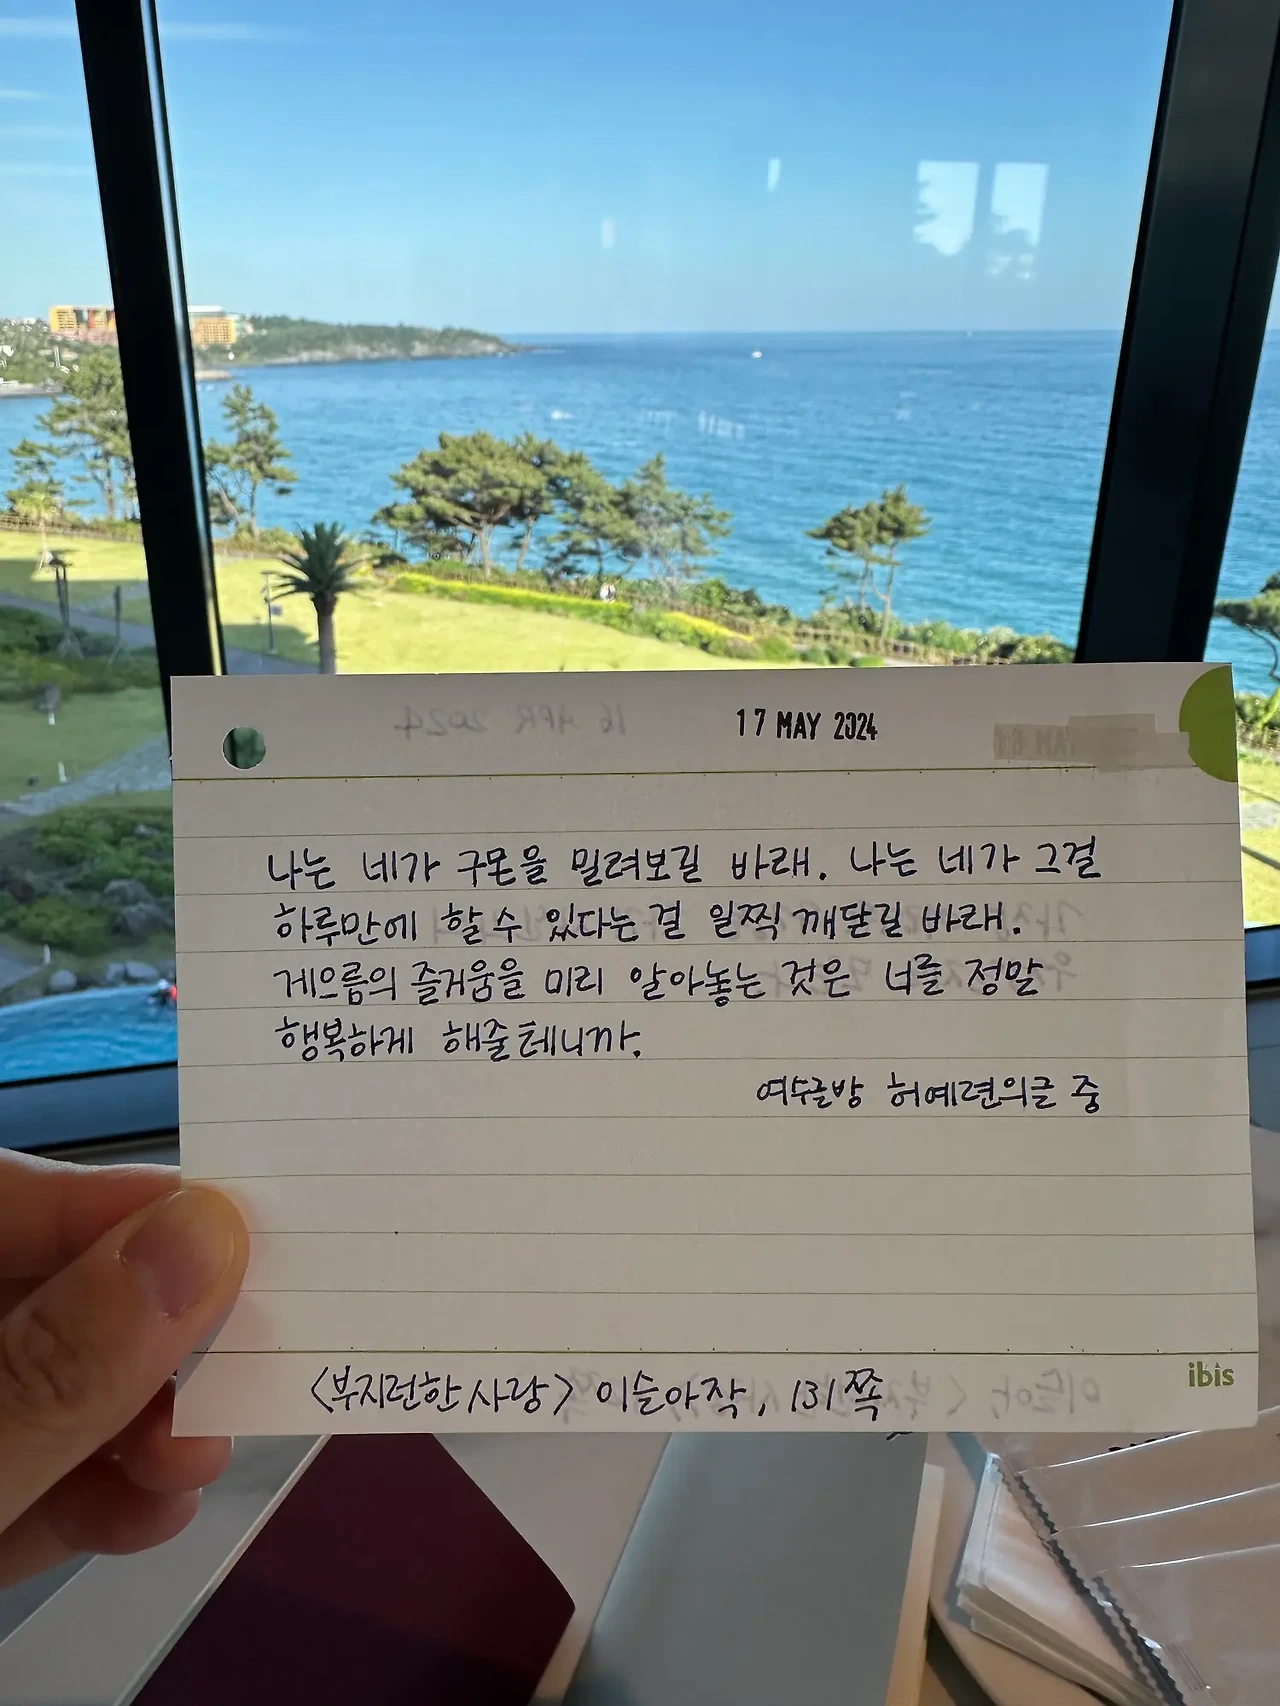 17 MAY 2024
나는 네가 구몬을 밀려보길 바래. 나는 네가 그걸
하루만에 할 수 있다는 걸 일찍 깨닫길 바래.
게으름의 즐거움을 미리 알아놓는 것은 너를 정말
행복하게 해줄테니까.
여수글방 허예련의 글 중
<부지런한 사랑> 이슬아 작, 131쪽
ibis